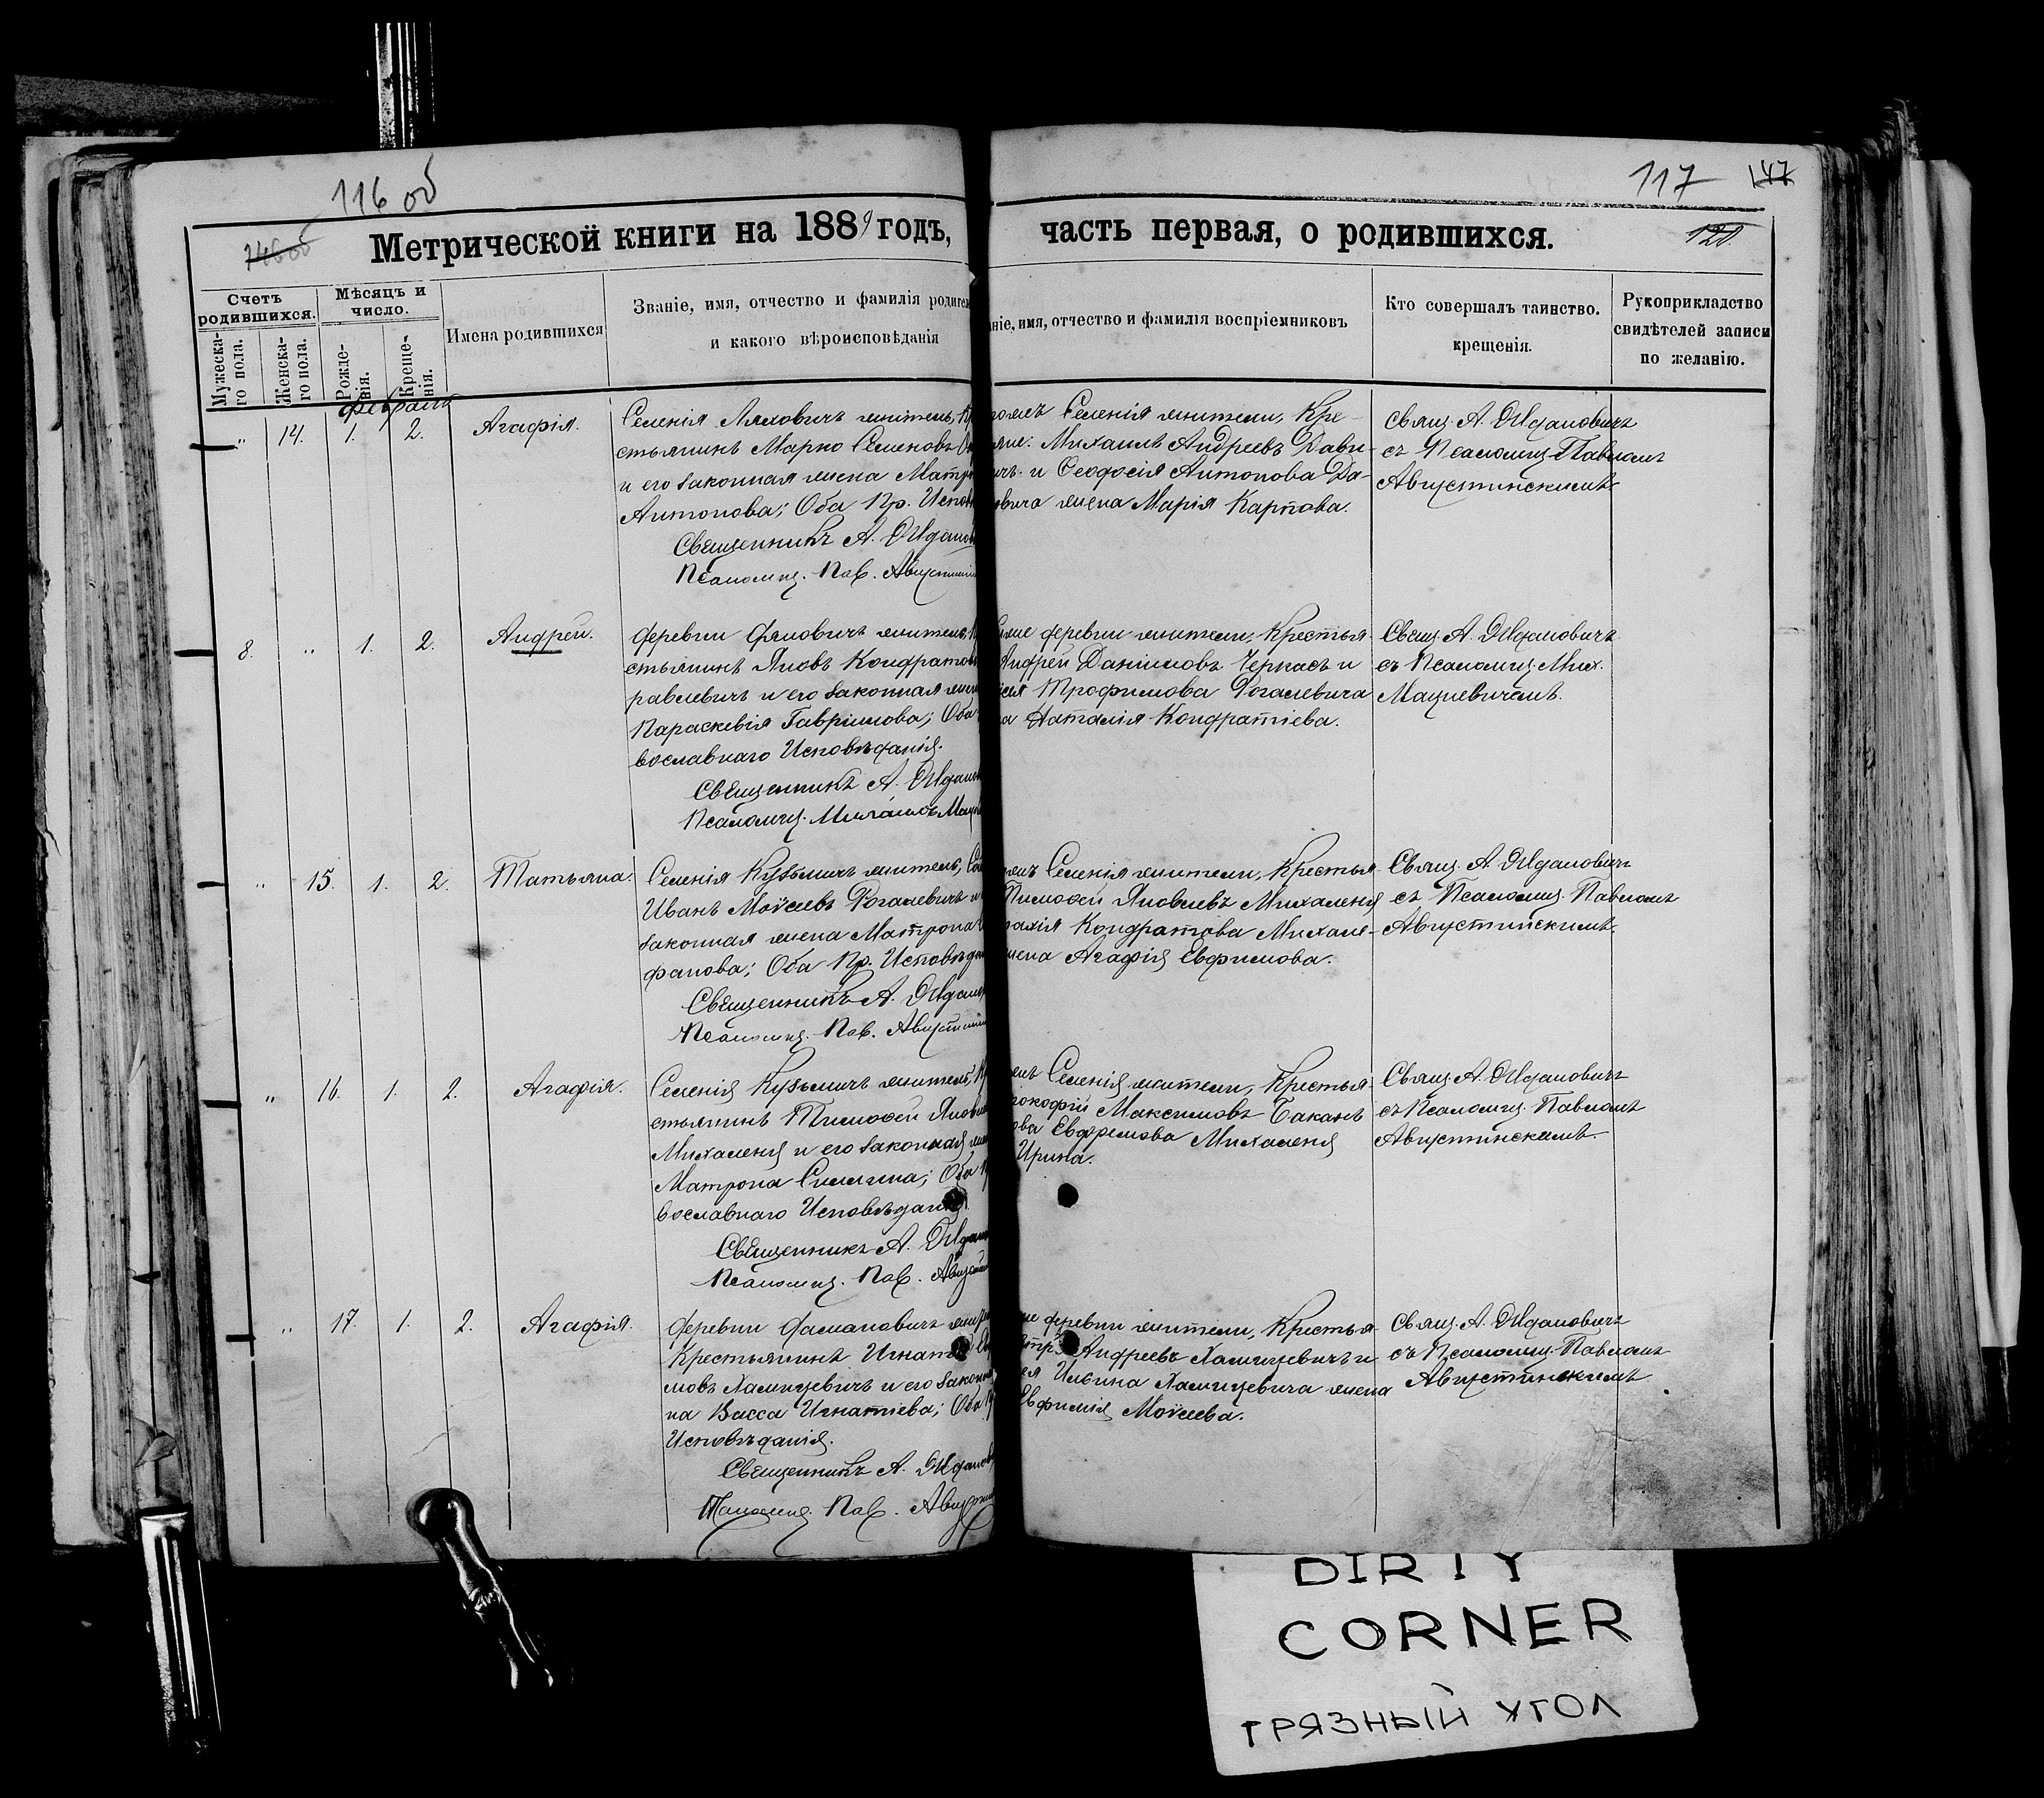 116 об
117
147
146 об
120
Метрической книги на 1889 годъ, часть первая, о родившихся.
Счетъ родившихся.
Мужеска-
го пола.
Женска-
го пола.
Мѣсяцъ и число.
Рожде-
нія.
Креще-
нія.
Имена родившихся
Званіе, имя, отчество и фамилія родител
и какого вѣроисповѣданія
ніе, имя, отчество и фамилія воспріемниковъ
Кто совершалъ таинство.
крещенія.
Рукоприкладство
свидѣтелей записи
по желанію.
Февраля
" 14. 1. 2. Агафія.
Селенія Ляховичъ житель, Кр
стьянинъ Марко Семеновъ
и его законная жена Матро
Антонова; Оба Пр. Испов
Священникъ А. Ждано
Псаломщ. Пав. Августин
Селенія жители, Кре-
Михаилъ Андреевъ Дави-
и Ѳеодосія Антонова Да-
вича жена Марія Карпова.
Свящ. А. Ждановичъ
съ Псаломщ. Павломъ
Августинскимъ.
8. " 1. 2. Андрей.
Деревни житель,
стьянинъ Яковъ Кондратов
равлевичъ и его законная жен
Параскевія Гавріилова; Оба
вославнаго Исповѣданія.
Священникъ А. Ждано
Псаломщ. Михаилъ Мац
деревни жители, Крестья-
Андрей Даніиловъ Черкасъ и
Трофимова Рогалевича
Наталія Кондратіева.
Свящ. А. Ждановичъ
съ Псаломщ. Мих.
Мацкевичемъ.
" 15. 1. 2. Татьяна.
Селенія Кузьмичъ житель,
Иванъ Моѵсеевъ Рогалевичъ и
законная жена Матрона
фанова; Оба Пр. Исповѣдан
Священникъ А. Ждан
Псаломщ. Пав. Августин
Селенія жители, Крестья
Тимоѳей Яковлевъ Михаленя
Кондратова Михале-
жена Агафія Евфимова.
Свящ. А. Ждановичъ
съ Псаломщ. Павломъ
Августинскимъ.
" 16. 1. 2. Агафія.
Селенія Кузьмичъ житель, Кр
стьянинъ Тимоѳей Яковл
Михаленя и его законная жен
Матрона Симеона; Оба Пр
вославнаго Исповѣданія.
Священникъ А. Ждан
Псаломщ. Пав. Августин
Селенія жители, Крестья
рокофій Максимовъ Баканъ
ова Евфремова Михаленя
Ирина.
Свящ. А. Ждановичъ
съ Псаломщ. Павломъ
Августинскимъ.
" 17. 1. 2. Агафія.
Деревни жит
Крестьянинъ Игнатъ
мовъ Хамицевичъ и его законн
на Васса Игнатіева; Оба Пр
Исповѣданія.
Священникъ А. Жданов
Псаломщ. Пав. Августин
деревни жители, Крестья-
Андреевъ Хамицевичъ и
Ильина Хамицевича жена
Евфимія Моѵсеева.
Свящ. А. Ждановичъ
съ Псаломщ. Павломъ
Августинскимъ
DIRTY
CORNER
ГРЯЗНЫЙ УГОЛ